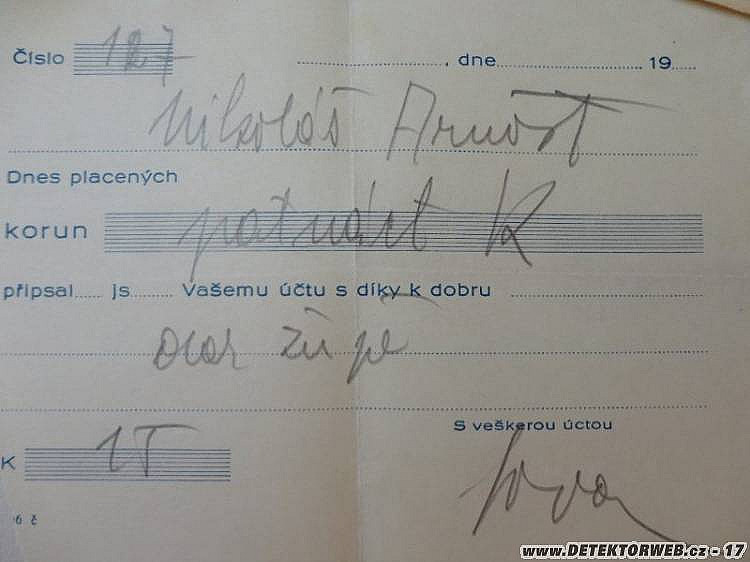 Číslo 127 , dne 19
Mikoláš Arnošt
Dnes placených
korun patnáct K
připsal js Vašemu účtu s díky k dobru
župě
K 15 S veškerou úctou
6 č
www.DETEKTORWEB.cz - 17